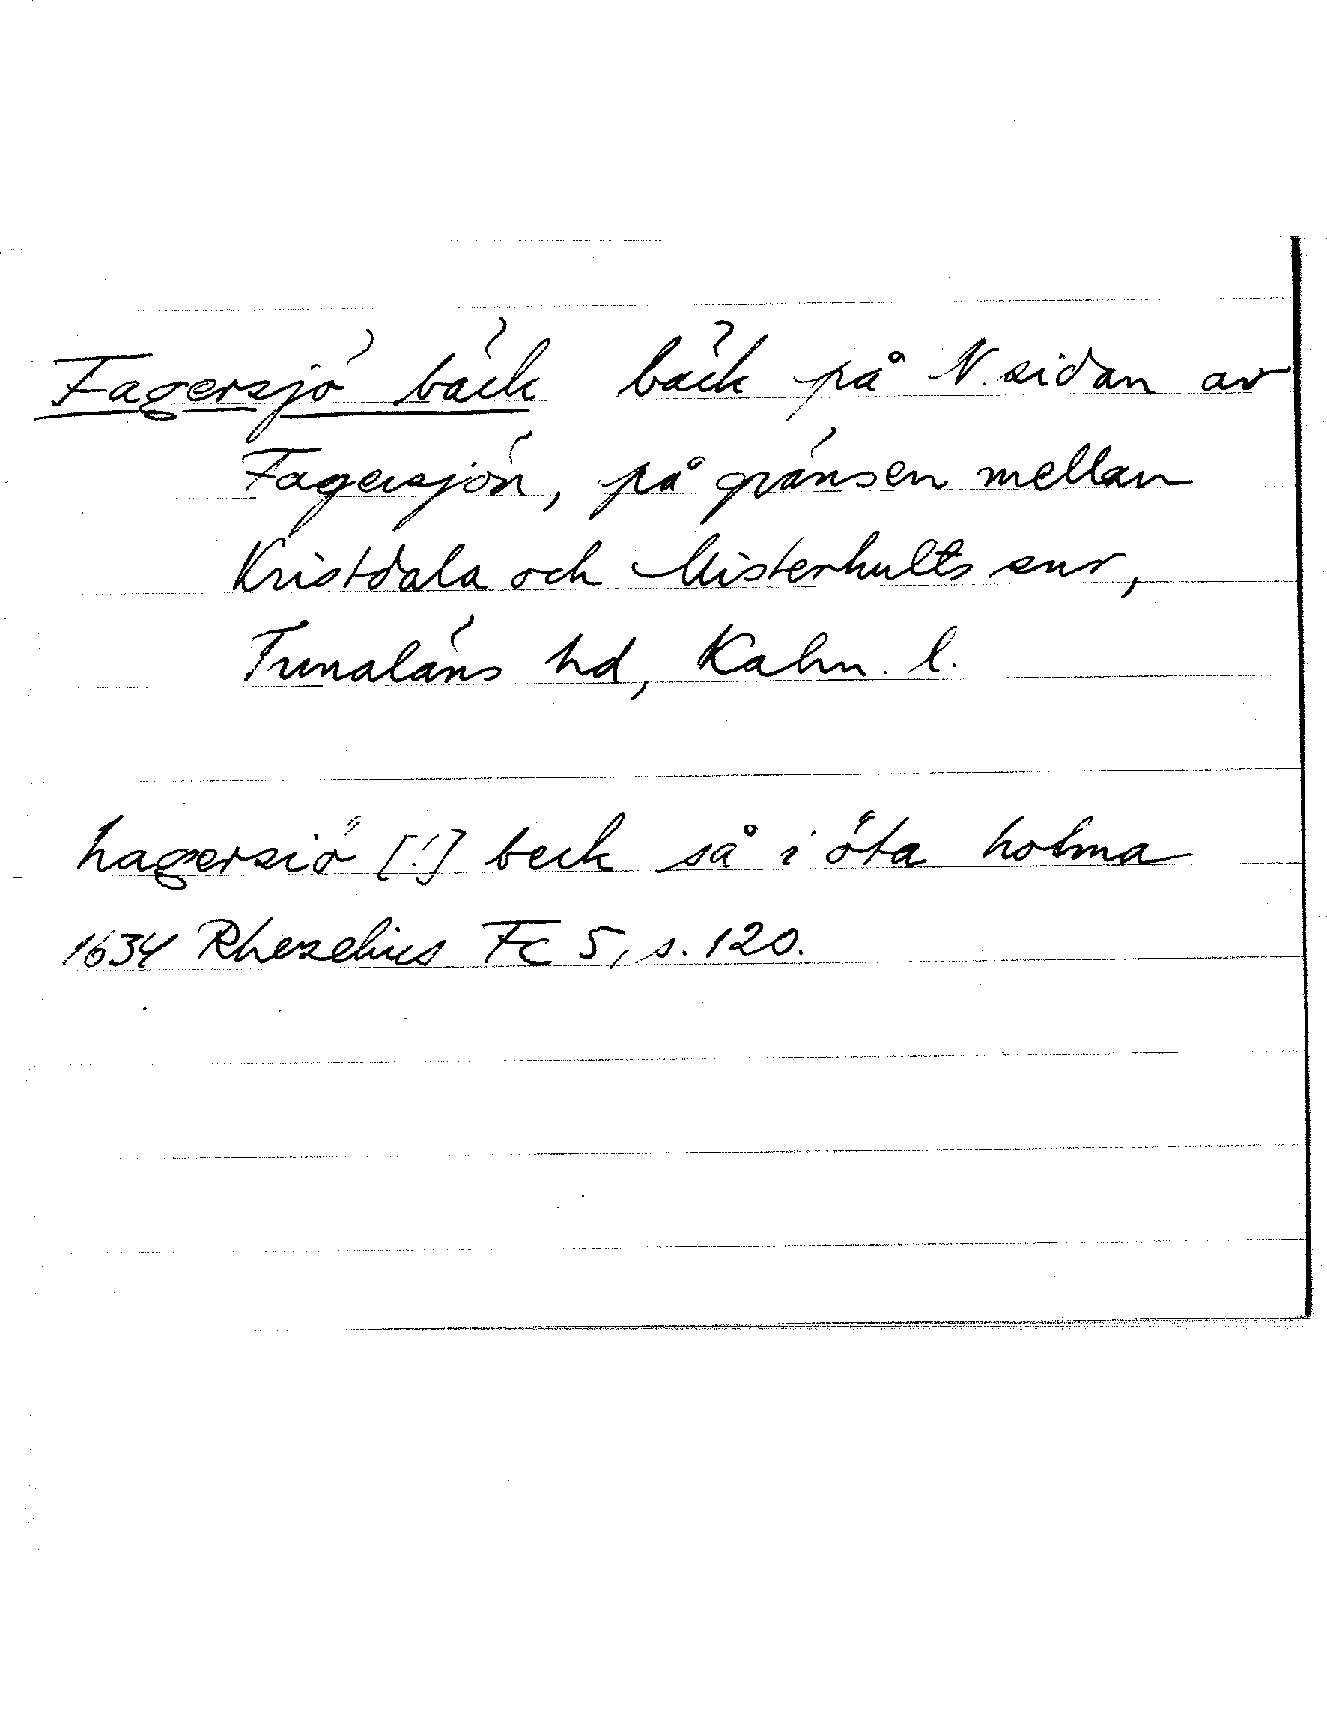 Fagersjö bäck bäck på N. sidan av
Fagersjön, på gränsen mellan
Kristdala och Misterhults snr,
Tunaläns hd, Kalm. l.
hagersiö [!] beck så i öta holma
1634 Rhezelius Fc 5, s. 120.